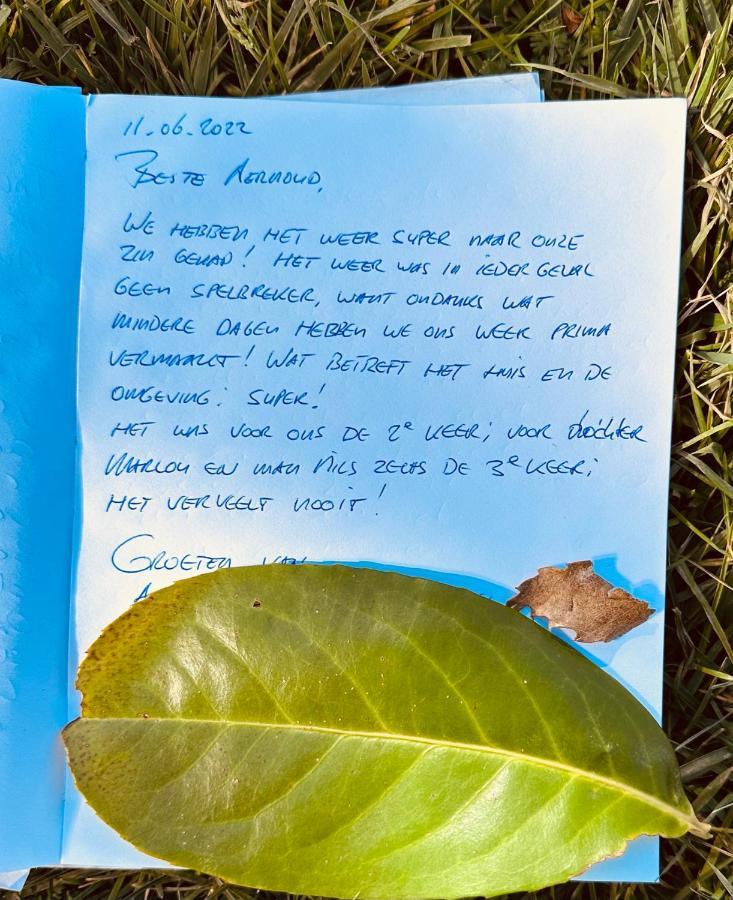 11.06.2022
BESTE AERNOUD,
WE HEBBEN HET WEER SUPER NAAR ONZE
ZIN GEHAD! HET WEER WAS IN IEDER GEVAL
GEEN SPELBREKER, WANT ONDANKS WAT
MINDERE DAGEN HEBBEN WE ONS WEEK PRIMA
VERMAAKT! WAT BETREFT HET HUIS EN DE
OMGEVING: SUPER!
HET WAS VOOR ONS DE 2e KEER; VOOR DOCHTER
MARLOU EN MAN NILS ZELFS DE 3e KEER;
HET VERVEELT NOOIT!
GROETEN VAN